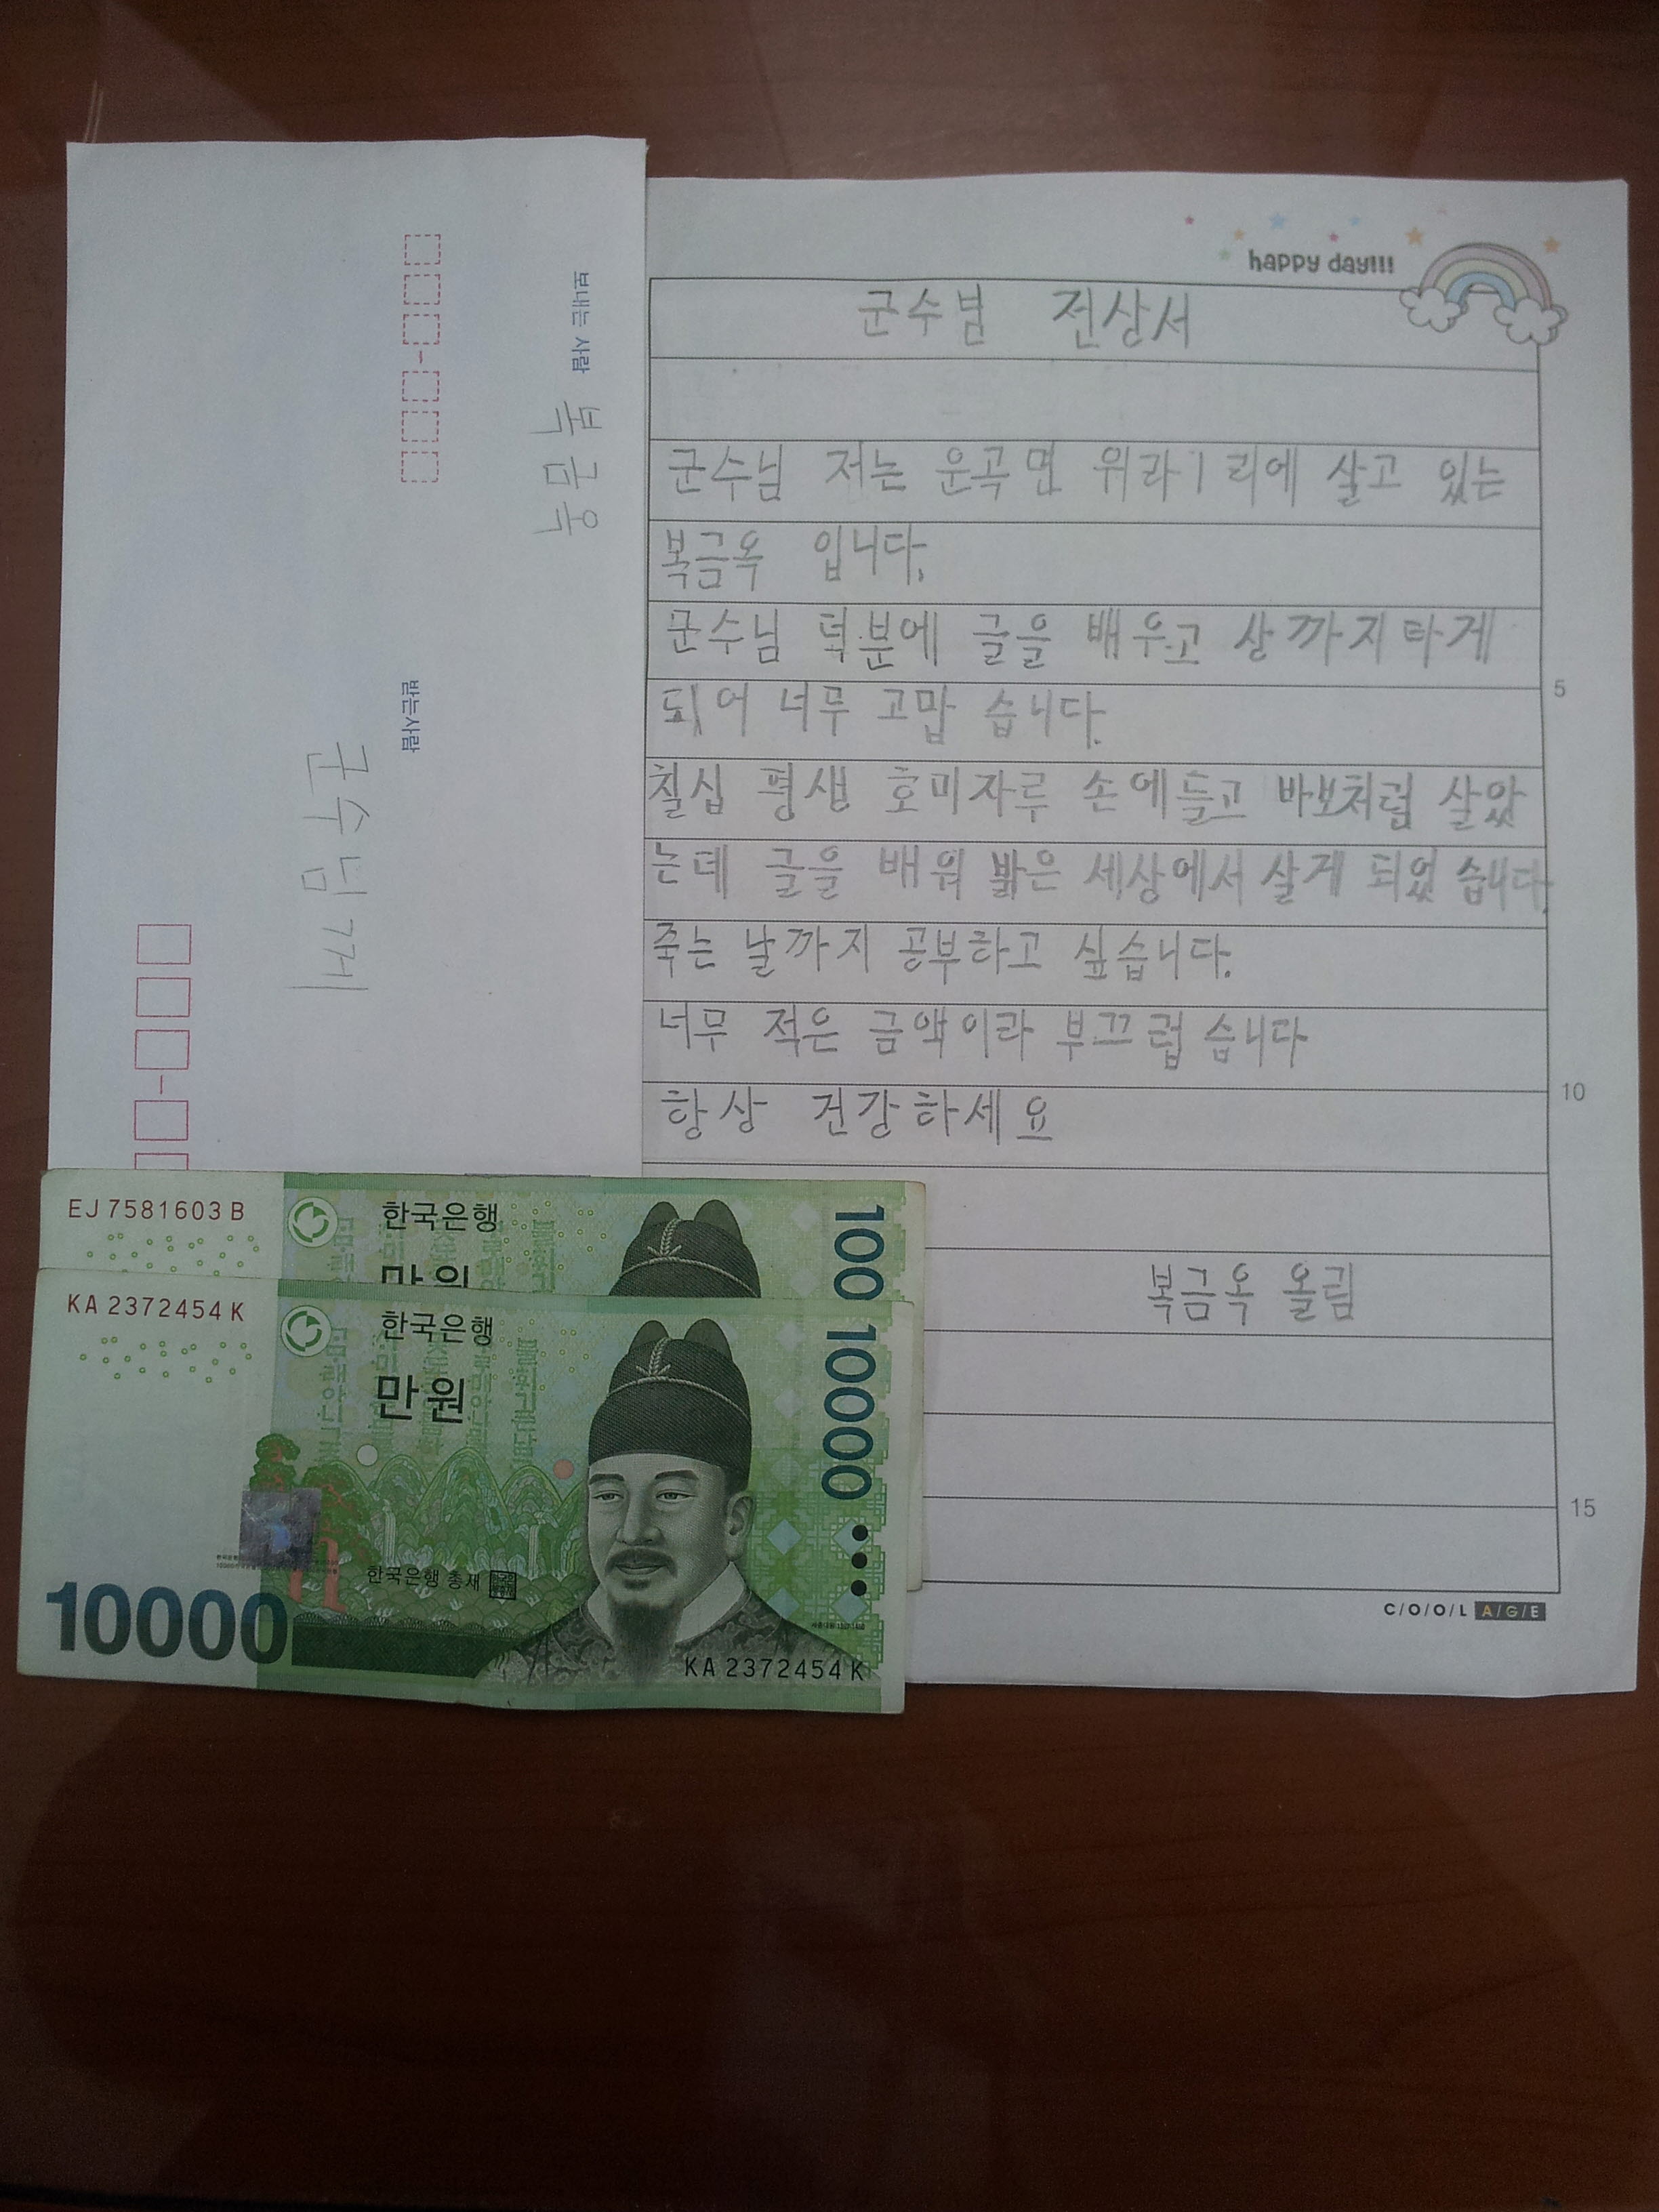 보내는 사람
복금옥
받는사람
군수님께
happy day!!!
군수님 전상서
군수님 저는 운곡면 위라1리에 살고 있는
복금옥 입니다.
군수님 덕분에 글을 배우고 상까지 타게
되어 너무 고맙 습니다.
칠십 평생 호미자루 손에들고 바보처럼 살았
는데 글을 배워 밝은 세상에서 살게 되었 습니다.
죽는 날까지 공부하고 싶습니다.
너무 적은 금액이라 부끄럽 습니다
항상 건강하세요
복금옥 올림
5
10
15
C/O/O/L A/G/E
EJ 7581603 B
한국은행
만원
100
KA 2372454 K
한국은행
만원
10000
한국은행 총재
10000
KA 2372454 K